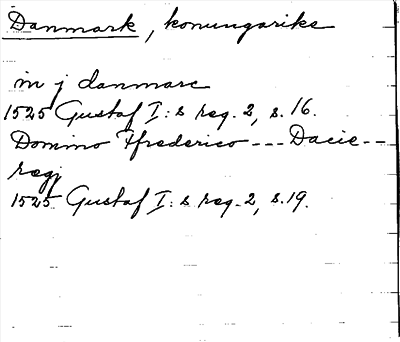 Danmark, konungarike
in j danmarc
1525 Gustaf I:s reg. 2, s. 16.
Domino Ffrederico --- Dacie --
regj
1525 Gustaf I:s reg. 2, s. 19.